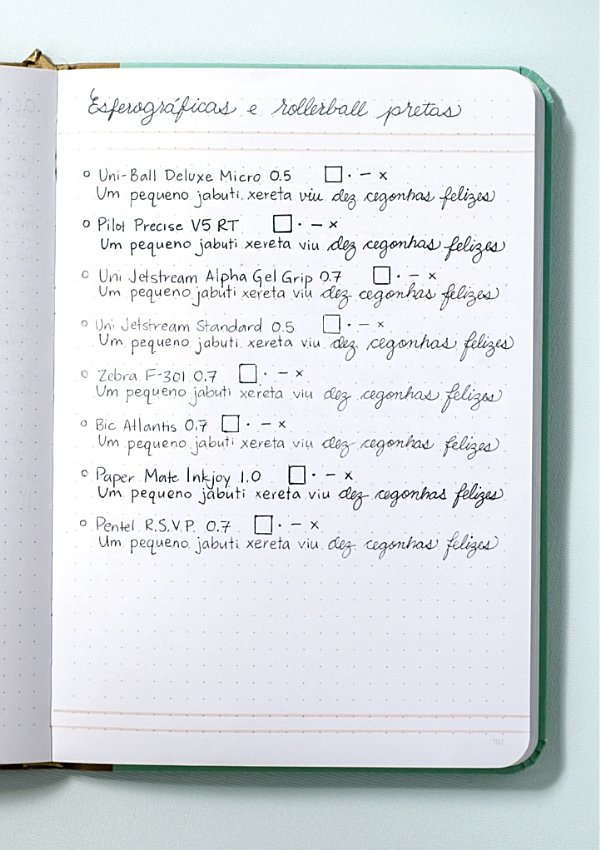 Esferográficas e rollerball pretas
Uni-Ball Deluxe Micro 0.5 □ · – x
Um pequeno jabuti xereta viu dez cegonhas felizes
Pilot Precise V5 RT □ · – x
Um pequeno jabuti xereta viu dez cegonhas felizes
Uni Jetstream Alpha Gel Grip 0.7 □ · – x
Um pequeno jabuti xereta viu dez cegonhas felizes
Uni Jetstream Standard 0.5 □ · – x
Um pequeno jabuti xereta viu dez cegonhas felizes
Zebra F-301 0.7 □ · – x
Um pequeno jabuti xereta viu dez cegonhas felizes
Bic Atlantis 0.7 □ · – x
Um pequeno jabuti xereta viu dez cegonhas felizes
Paper Mate Inkjoy 1.0 □ · – x
Um pequeno jabuti xereta viu dez cegonhas felizes
Pentel R.S.V.P. 0.7 □ · – x
Um pequeno jabuti xereta viu dez cegonhas felizes
197